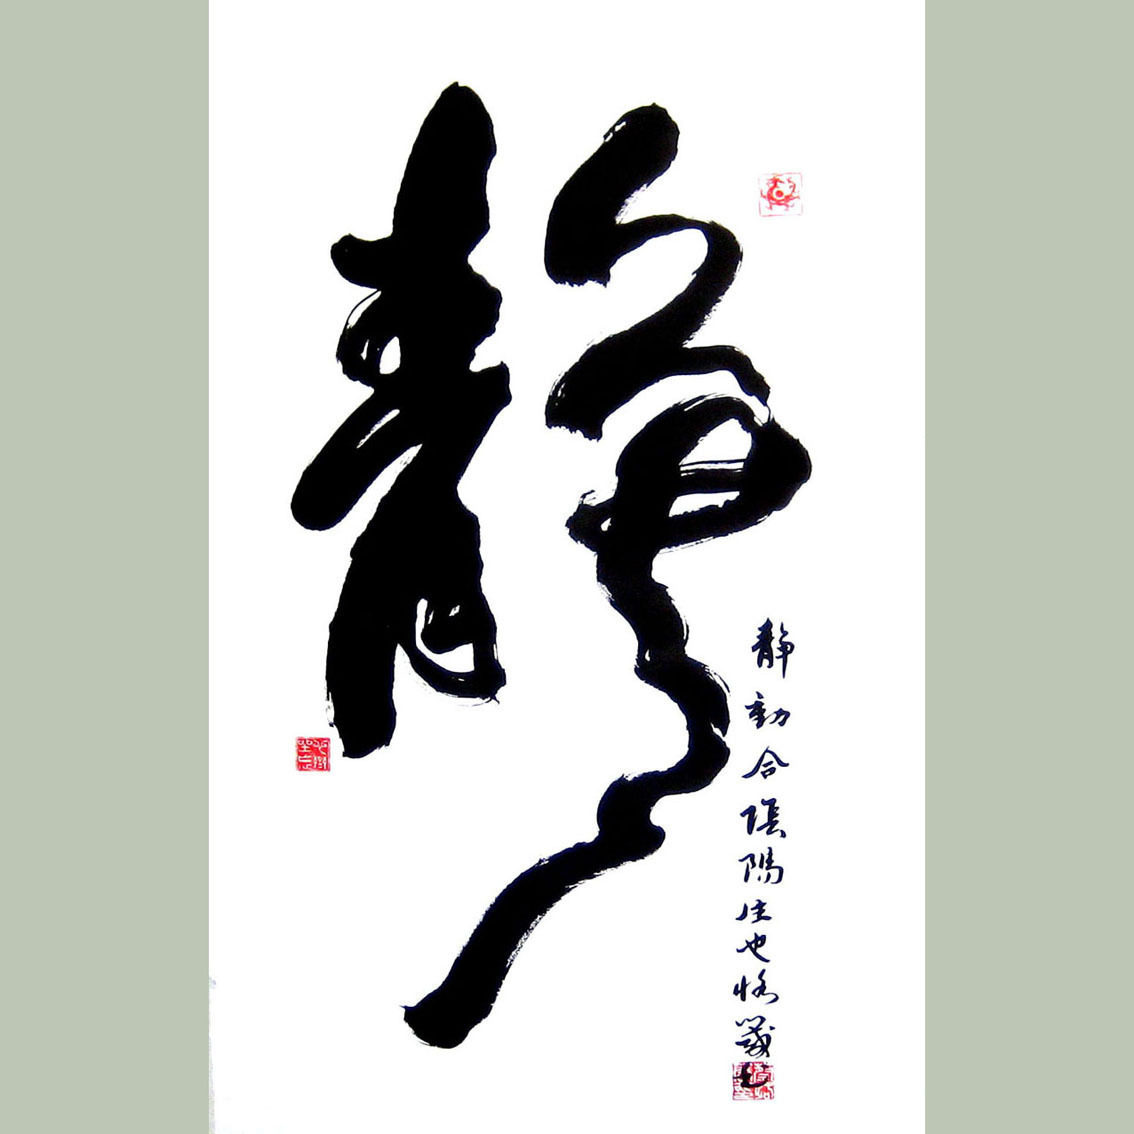 靜
靜動合陰陽生也